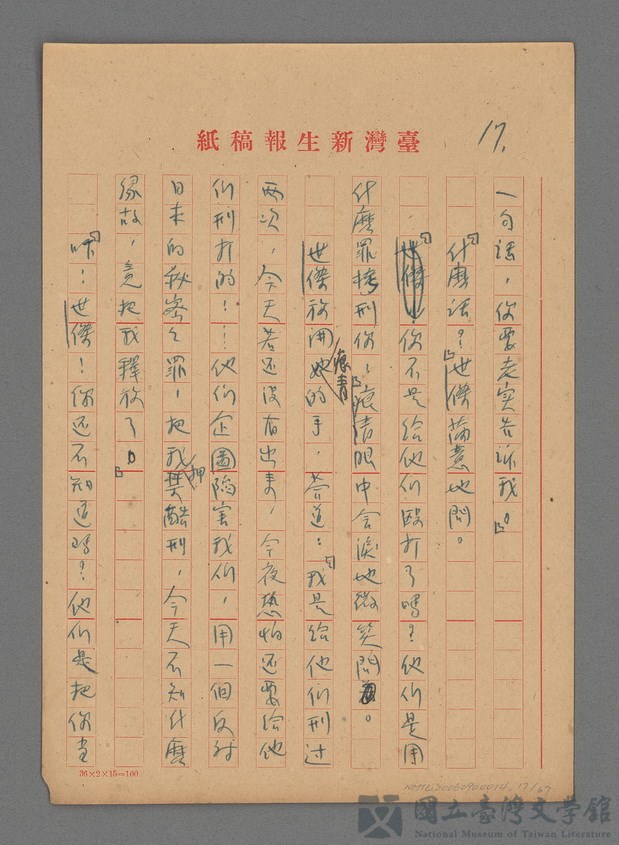 17.
紙稿報生新灣臺
一句話，你要老實告訴我。」
「什麼話？」世傑蓄意地問。
「世傑！你不是給他們毆打了嗎？他們是用
什麼罪捶刑你？」痕青眼中含淚地微笑問。
世傑放開痕青的手，答道：「我是給他們刑過
兩次，今天若还沒有出事，今夜恐怕还要給他
们刑打的！！他们企圖陷害我们，用一個反対
日本的秘密之罪，把我押酷刑，今天不知什麼
緣故，竟把我釋放了。」
「咊！世傑！你还不知道嗎？他们是把你当
36×2×15=100
NMTL20050900014, 17/67
國立臺灣文学館
National Museum of Taiwan Literature